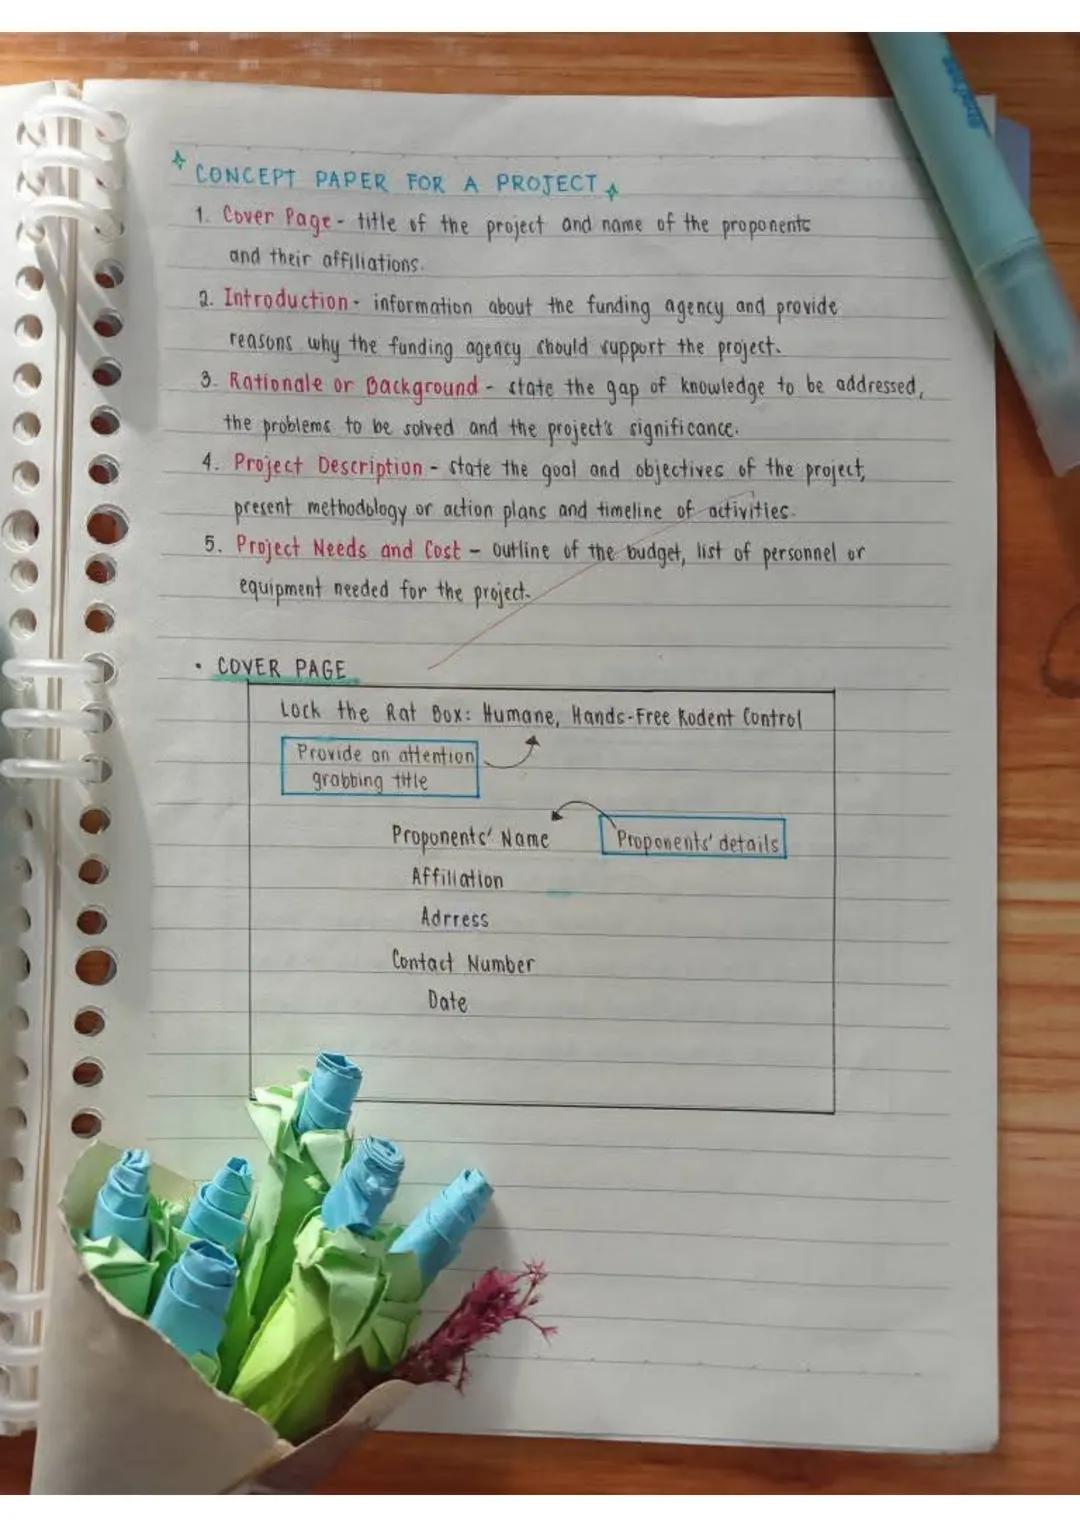 CONCEPT PAPER FOR A PROJECT
1. Cover Page - title of the project and name of the proponents
and their affiliations.
2. Introduction - information about the funding agency and provide
reasons why the funding agency should support the project.
3. Rationale or Background - state the gap of knowledge to be addressed,
the problems to be solved and the project's significance.
4. Project Description - state the goal and objectives of the project,
present methodology or action plans and timeline of activities.
5. Project Needs and Cost - outline of the budget, list of personnel or
equipment needed for the project.
• COVER PAGE
Lock the Rat Box: Humane, Hands-Free Rodent Control
Provide an attention
grabbing title
Proponents' Name
Proponents' details
Affiliation
Adrress
Contact Number
Date